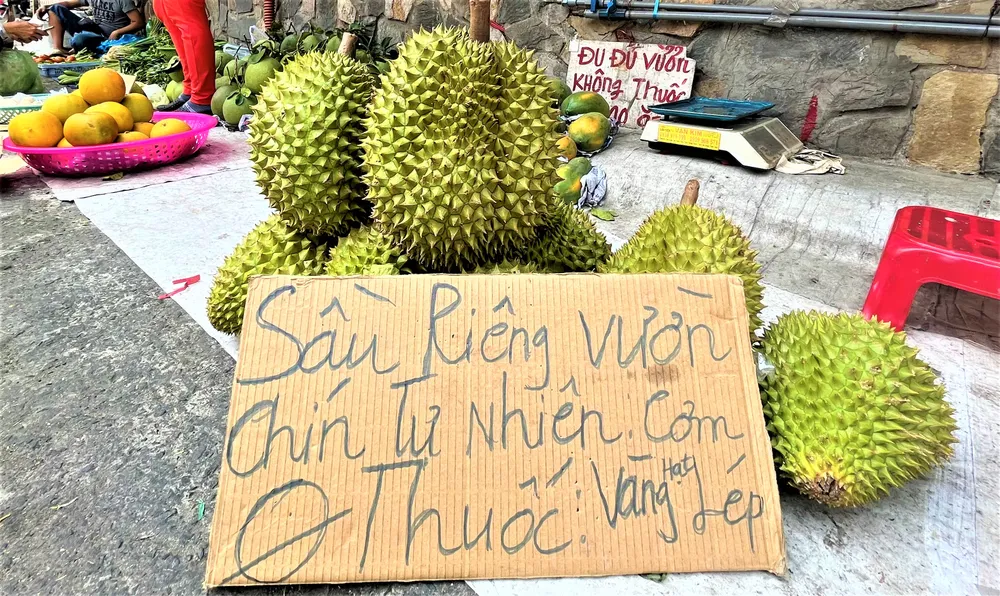 ĐU ĐỦ VƯỜN
KHÔNG THUỐC
VẠN KIM
Sầu Riêng vườn
chín Tự Nhiên. Cơm
Ø Thuốc: vàng Hạt Lép